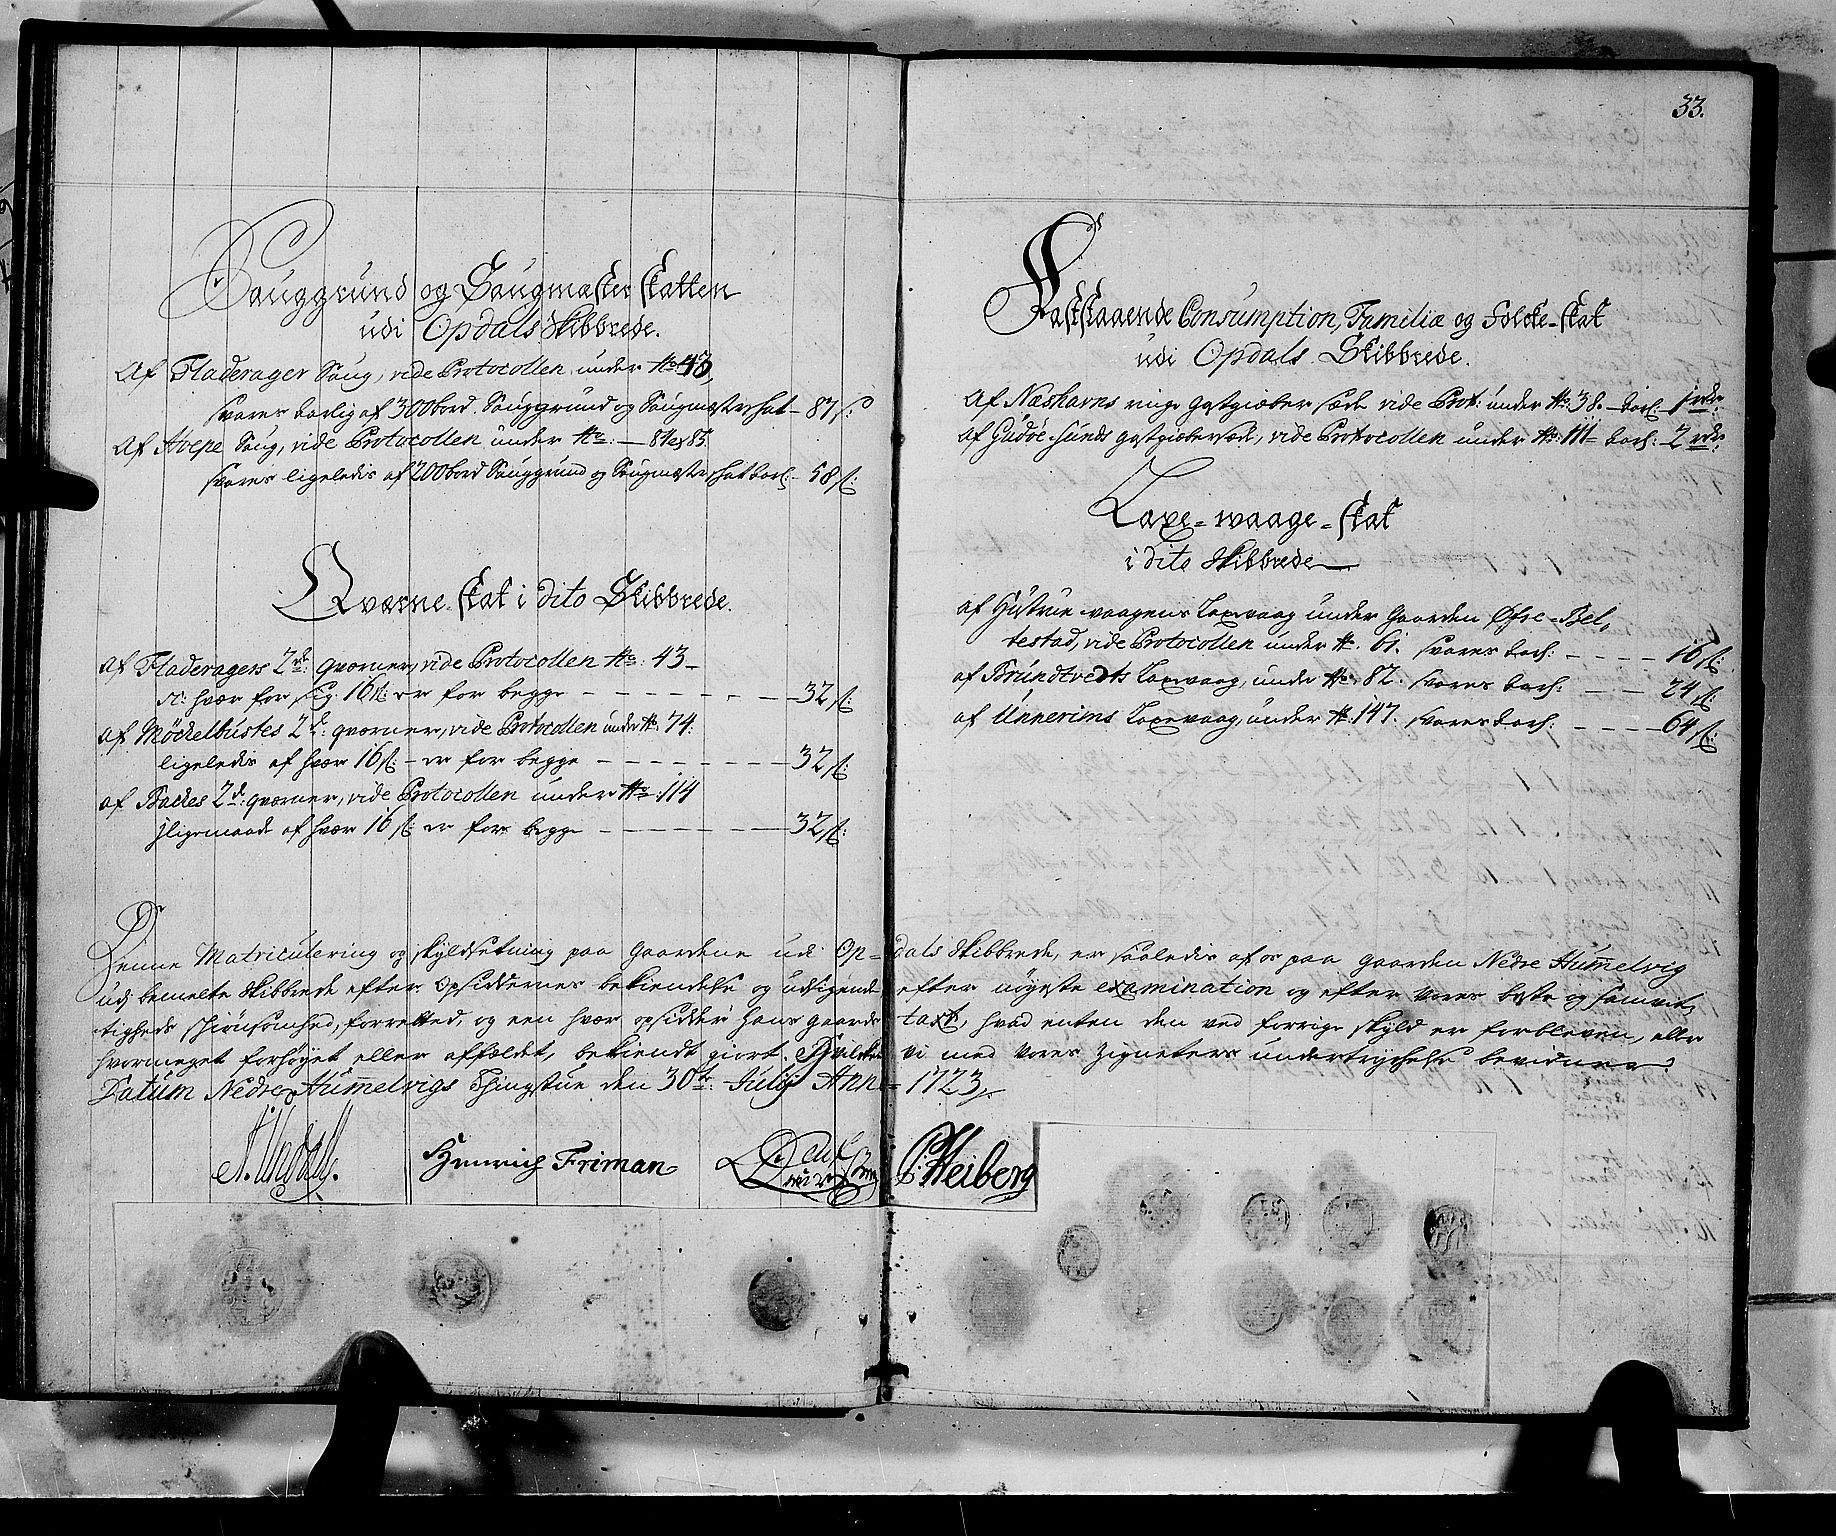 Sauggrund og Saugmæster skatten
udi Opdals Skibbrede.
Af Fladerager Saug, vide Protocollen under No 43,
svares aarlig af 300 bord Sauggrund og Saugmæster skat - 87 s:
Af Avepe Saug, vide Protocollen under No: — 84 et 85
svares ligeledis af 200 bord Sauggrund og Saugmæster skat aarl: - 58 s:
Qværne-skat i dito Skibbrede.
af Fladeragers 2de: qværner, vide Protocollen No: 43 -
hvær for sig 16 s: er for begge - - - - - - - 32 s:
af Möckelbustes 2de: qværner, vide Protocollen under No: 74:
ligeledis af hvær 16 s: - er for begge - - - - - - - 32 s:
af Backes 2de: qværner, vide Protocollen under No: 114
jligemaade af hvær 16 s: er for begge - - - - - - - 32 s:
33.
Faststaaende Consumption, Familiæ og Folcke-skat
udi Opdals Skibbrede.
Af Næshavns ringe gæstgieber sæde vide Prot: under No: 38. - aarl: - 1 rdr
af Gudöe-sunds gæstgiebersæde, vide Protocollen under No: 111 - aarl: - 2 rdr
Laxe-waage-skat
i dito Skibbrede
af Hustrue-vaagens Laxevaag under Gaarden Øfre-Bel,
testad, vide Protocollen under No. 61. svares aarl: - - - - 16 s:
af Brundtvedts Laxevaag, under No: 82. svares aarl: - - - 24 s:
af Unnerims Laxevaag, under No: 147. svares aarl: - - - - 64 s:
Denne Matriculering og skyldsetning paa Gaardene udi Op-dals Skibbrede, er saaledis af os paa Gaarden Nedre Hummelvig
udj bemelte Skibbrede efter Opsiddernes bekiendelse og udsigende efter nöyeste examination og efter vores beste og samvit,
tigheds skiönsomhed, forretted, og een hvær opsidder hans gaards taxt, hvad enten den ved forrige skyld er forbleven, eller
hvormeget forhöyet eller affældet, bekiendt giort. Hvilcket vi med vores Zigneters undertryckelse bevidner
Datum Nedre Hummelvigs Thingstue den 30te: Julij Anno 1723.
Henrich Friman
P: Heiberg